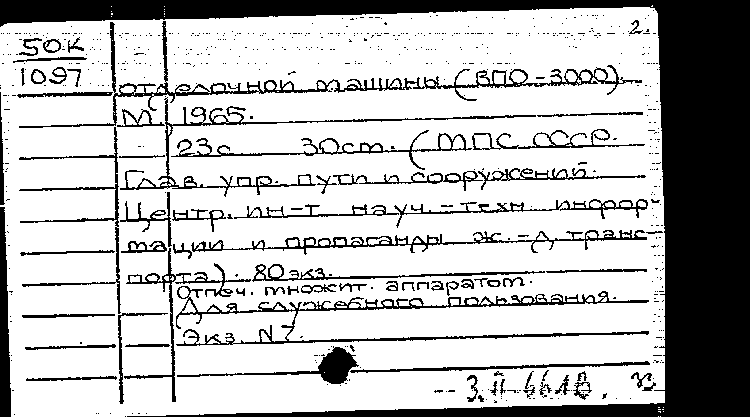 2.
50К
1097
отделочной машины (ВПО-3000).
М., 1965.
23с 30см. (МПС СССР.
Глав. упр. пути и сооружений.
Центр. ин-т науч.-техн. инфор-
мации и пропаганды ж.-д. транс-
порта). 80 экз.
Отпеч. множит. аппаратом.
Для служебного пользования.
Экз. N 7.
3.II 66